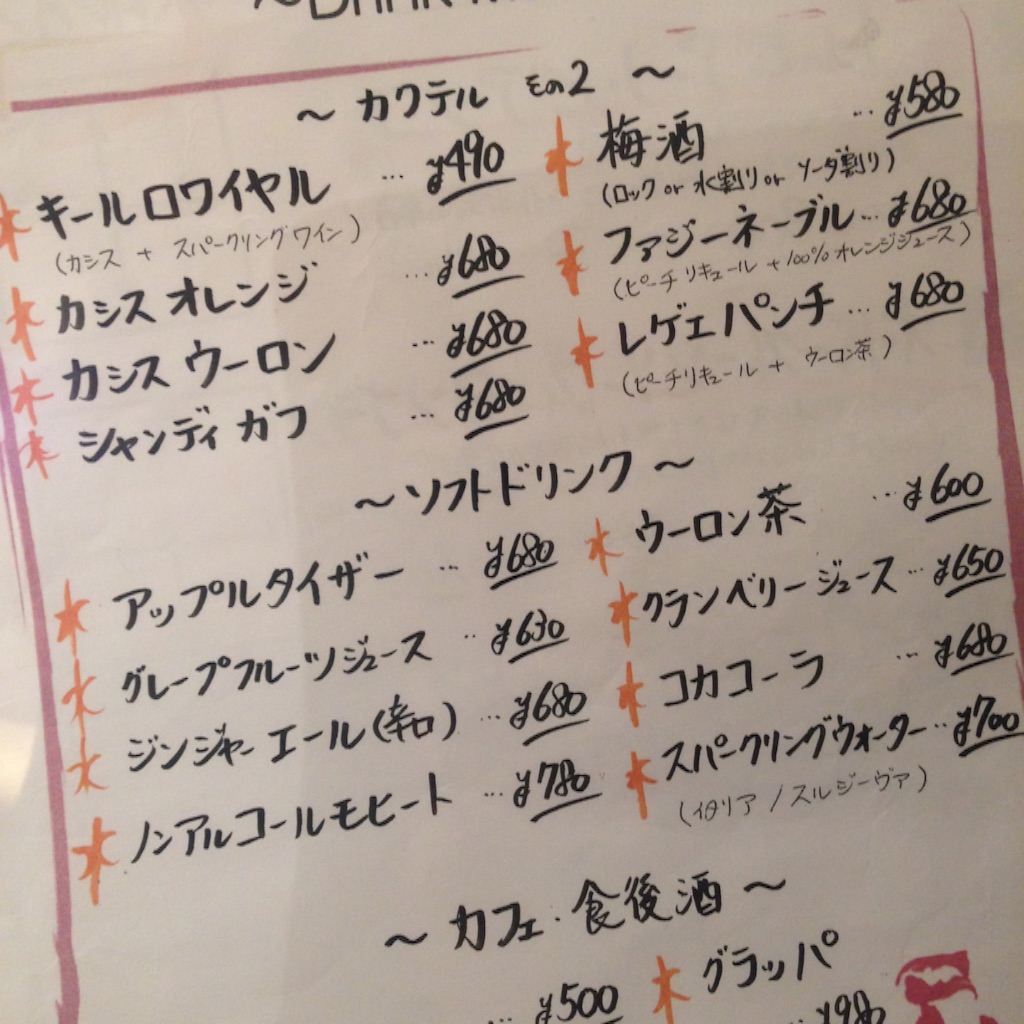 ~ カクテル その2 ~
キールロワイヤル ... ¥490
(カシス + スパークリングワイン)
カシスオレンジ ... ¥680
カシスウーロン ... ¥680
シャンディガフ ... ¥680
梅酒 ... ¥580
(ロック or 水割り or ソーダ割り)
ファジーネーブル ... ¥680
(ピーチリキュール + 100%オレンジジュース)
レゲエパンチ ... ¥680
(ピーチリキュール + ウーロン茶)
~ ソフトドリンク ~
アップルタイザー ... ¥680
グレープフルーツジュース .. ¥630
ジンジャーエール(辛口) ... ¥680
ノンアルコールモヒート ... ¥780
ウーロン茶 ... ¥600
クランベリージュース ... ¥650
コカコーラ ... ¥680
スパークリングウォーター ... ¥700
(イタリア / スルジーヴァ)
~ カフェ・食後酒 ~
... ¥500
グラッパ
... ¥980